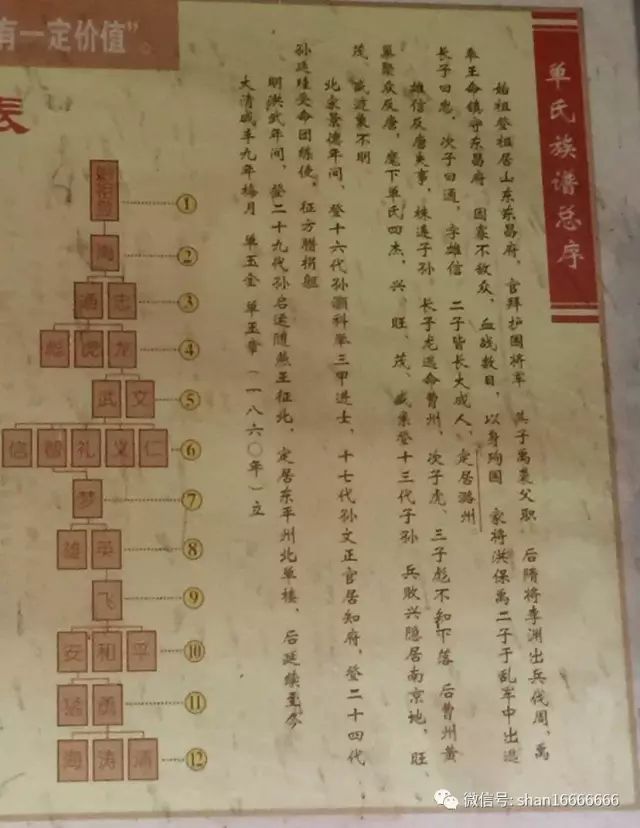 单氏族谱总序
始祖登祖居山东东昌府，官拜护国将军 其子禹袭父职 后隋将李渊出兵伐周，禹
奉王命镇守东昌府 因寡不敌众，血战数日，以身殉国 家将洪保禹二子于乱军中出逃
长子曰忠，次子曰通，字雄信 二子皆长大成人，定居潞州
雄信反唐夷事，株连子孙 长子龙逃命曹州，次子虎、三子彪不知下落 后曹州黄
巢聚众反唐，麾下单氏四杰，兴、旺、茂、盛集登十三代子孙 兵败兴隐居南京地，旺、
茂、盛逃巢不明
北宋景德年间，登十六代孙灏科举三甲进士，十七代孙文正官居知府，登二十四代
孙廷珪受命团练使，征方腊拐艇
明洪武年间，登二十九代孙启运随燕王征北，定居东平州北单楼，后延续至今
大清咸丰九年梅月 单五金 单玉章（一八六〇年）立
有一定价值”。
表
始祖登 ①
禹 ②
通 志 ③
彪 虎 龙 ④
武 文 ⑤
信 智 礼 义 仁 ⑥
梦 ⑦
雄 英 ⑧
飞 ⑨
安 和 平 ⑩
猛 勇 ⑪
海 涛 涌 ⑫
微信号: shan16666666